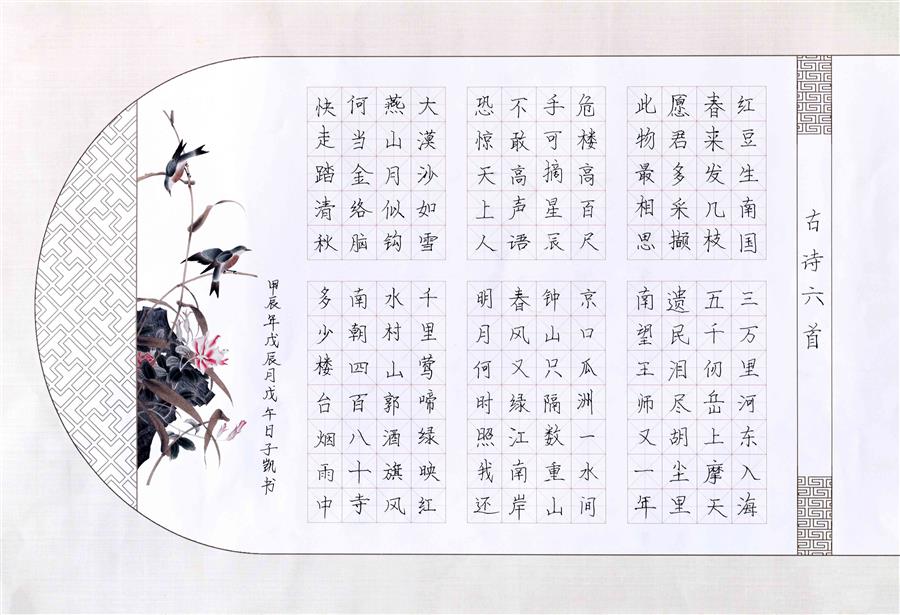 古诗六首
红豆生南国
春来发几枝
愿君多采撷
此物最相思
三万里河东入海
五千仞岳上摩天
遗民泪尽胡尘里
南望王师又一年
危楼高百尺
手可摘星辰
不敢高声语
恐惊天上人
京口瓜洲一水间
钟山只隔数重山
春风又绿江南岸
明月何时照我还
大漠沙如雪
燕山月似钩
何当金络脑
快走踏清秋
千里莺啼绿映红
水村山郭酒旗风
南朝四百八十寺
多少楼台烟雨中
甲辰年戊辰月戊午日子凯书